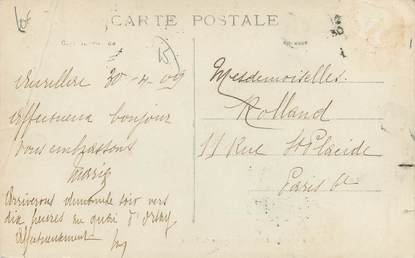 CARTE POSTALE
30-4-09
Affectueux bonjour
Vous embrassons
Marie
Arriverons dimanche soir vers
dix heures au quai d'Orsay
Affectueusement
Mesdemoiselles
Rolland
11 Rue St Placide
Paris 6e